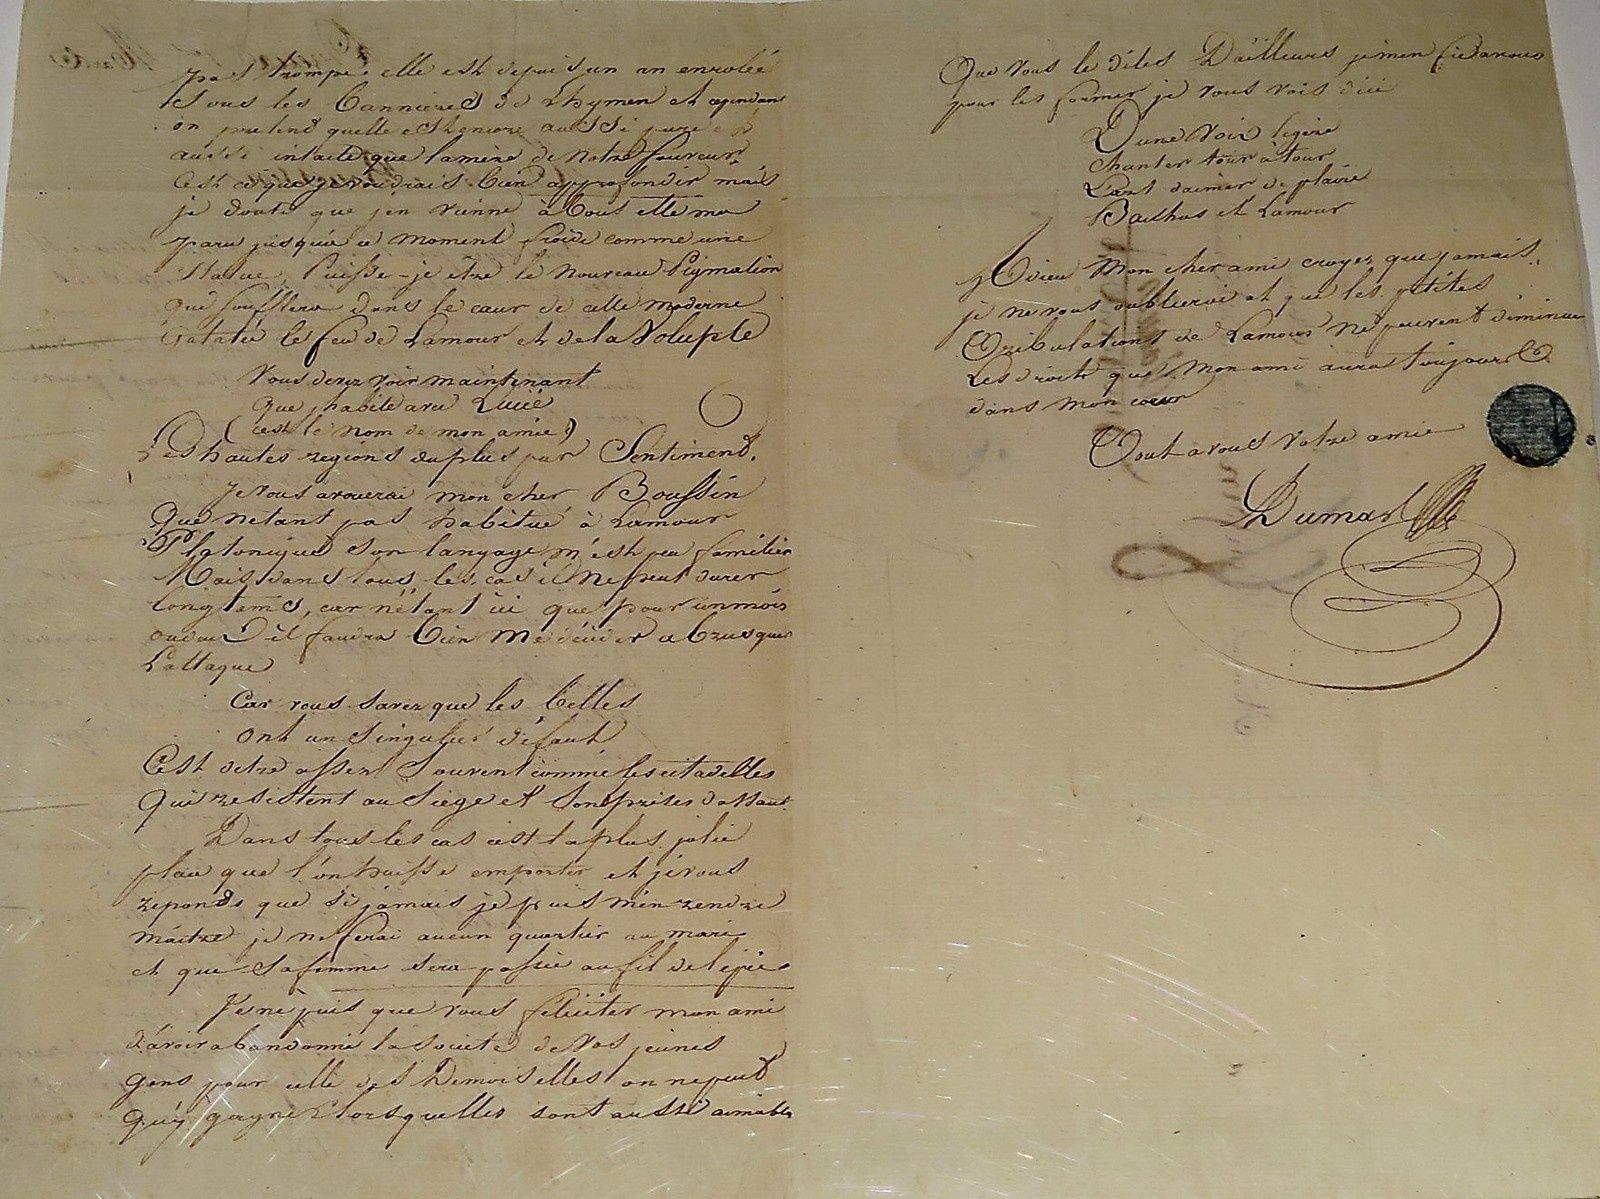 pas trompé. elle est depuis un an enrolée
sous les bannieres de Lhymen et cependant
on pretend quelle est encore aussi pure et
aussi intacte que la mère de notre Sauveur.
Cest ce que je voudrais bien approfondir mais
je doute que jen vienne à bout elle ma
paru jusquà ce moment froide comme une
statue, Puisse-je être le nouveau Pigmalion
qui soufflera dans le cœur de cette moderne
Galatée le feu de Lamour et de la Volupté
Vous devez voir maintenant
que jhabite avec Lucie
(cest le nom de mon amie)
Les hautes regions du plus pur Sentiment.
Je vous avouerai mon cher Boussin
Que netant pas habitué à Lamour
Platonique son langage m'est peu familier
Mais dans tous les cas il ne peut durer
longtems, car n'étant ici que pour un mois
ou deux il faudra bien me décider a brusquer
Lattaque
Car vous savez que les belles
ont un singulier défaut
Cest detre assez souvent comme les citadelles
Qui resistent au siege et sont prises dassaut.
Dans tous les cas cest la plus jolie
place que l'on puisse emporter et je vous
reponds que si jamais je puis m'en rendre
maitre je ne ferai aucun quartier au mari
et que sa femme sera passée au fil de l'épée
Je ne puis que vous féliciter mon ami
d'avoir abandonné la société de Nos jeunes
gens pour celle des Demoiselles on ne peut
qu'y gagner lorsquelles sont aussi aimables
Que vous le dites D'ailleurs je men fie a vous
pour les former je vous vois dici
Dune voix legère
Chanter tour à tour
Lart daimer de plaire
Bachus et Lamour
Adieu Mon cher ami croyez que jamais
je ne vous oublierai et que les petites
Tribulations de Lamour ne peuvent diminuer
Les droits que Mon ami aura toujours
dans mon cœur
Tout a vous votre ami
Dumas